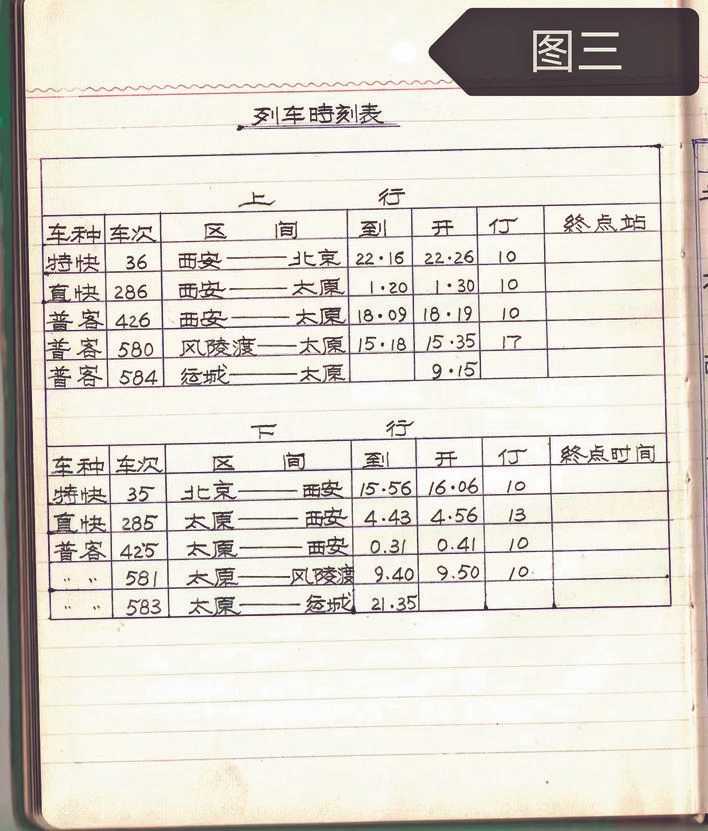 图三
列车時刻表
上 行
车种 车次 区 间 到 开 仃 終点站
特快 36 西安——北京 22·16 22·26 10
直快 286 西安——太原 1·20 1·30 10
普客 426 西安——太原 18·09 18·19 10
普客 580 风陵渡——太原 15·18 15·35 17
普客 584 运城——太原 9·15
下 行
车种 车次 区 间 到 开 仃 終点时间
特快 35 北京——西安 15·56 16·06 10
直快 285 太原——西安 4·43 4·56 13
普客 425 太原——西安 0.31 0.41 10
〃 〃 581 太原——风陵渡 9.40 9.50 10
〃 〃 583 太原——运城 21.35